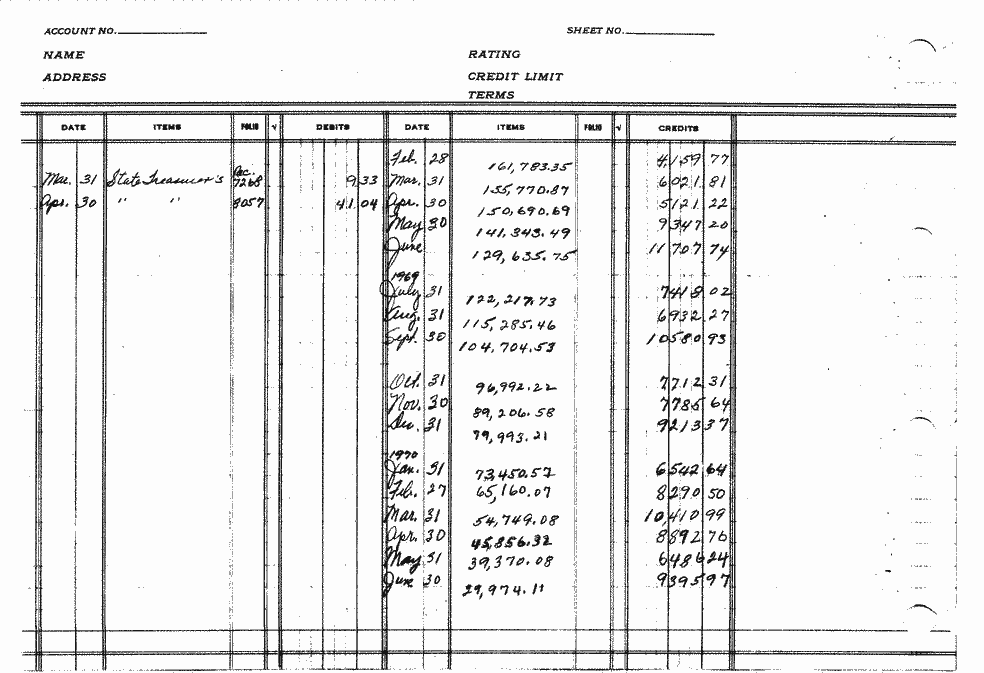 ACCOUNT NO. SHEET NO.
NAME RATING
ADDRESS CREDIT LIMIT
TERMS
DATE ITEMS FOLIO √ DEBITS DATE ITEMS FOLIO √ CREDITS
Feb. 28 161,783.35 4159 77
Mar. 31 State Treasurer's Rec. 7268 9 33 Mar. 31 155,770.87 6021 81
Apr. 30 " " 8057 41 04 Apr. 30 150,690.69 5121 22
May 30 141,343.49 9347 20
June 129,635.75 11707 74
1969
July 31 122,217.73 7418 02
Aug. 31 115,285.46 6932 27
Sept. 30 104,704.53 10580 93
Oct. 31 96,992.22 7712 31
Nov. 30 89,206.58 7785 64
Dec. 31 79,993.21 9213 37
1970
Jan. 31 73,450.57 6542 64
Feb. 27 65,160.07 8290 50
Mar. 31 54,749.08 10,410 99
Apr. 30 45,856.32 8892 76
May 31 39,370.08 6486 24
June 30 29,974.11 9395 97